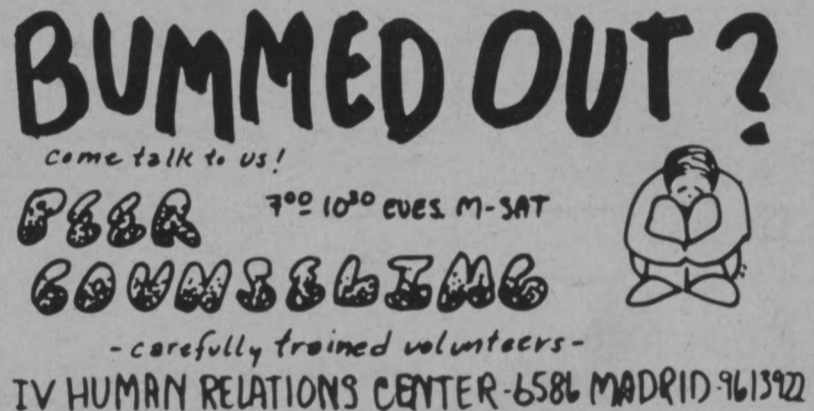 BUMMED OUT?
come talk to us!
PEER 7⁰⁰ 10³⁰ EVES. M-SAT
COUNSELING
-carefully trained volunteers-
IV HUMAN RELATIONS CENTER-6586 MADRID-9613922